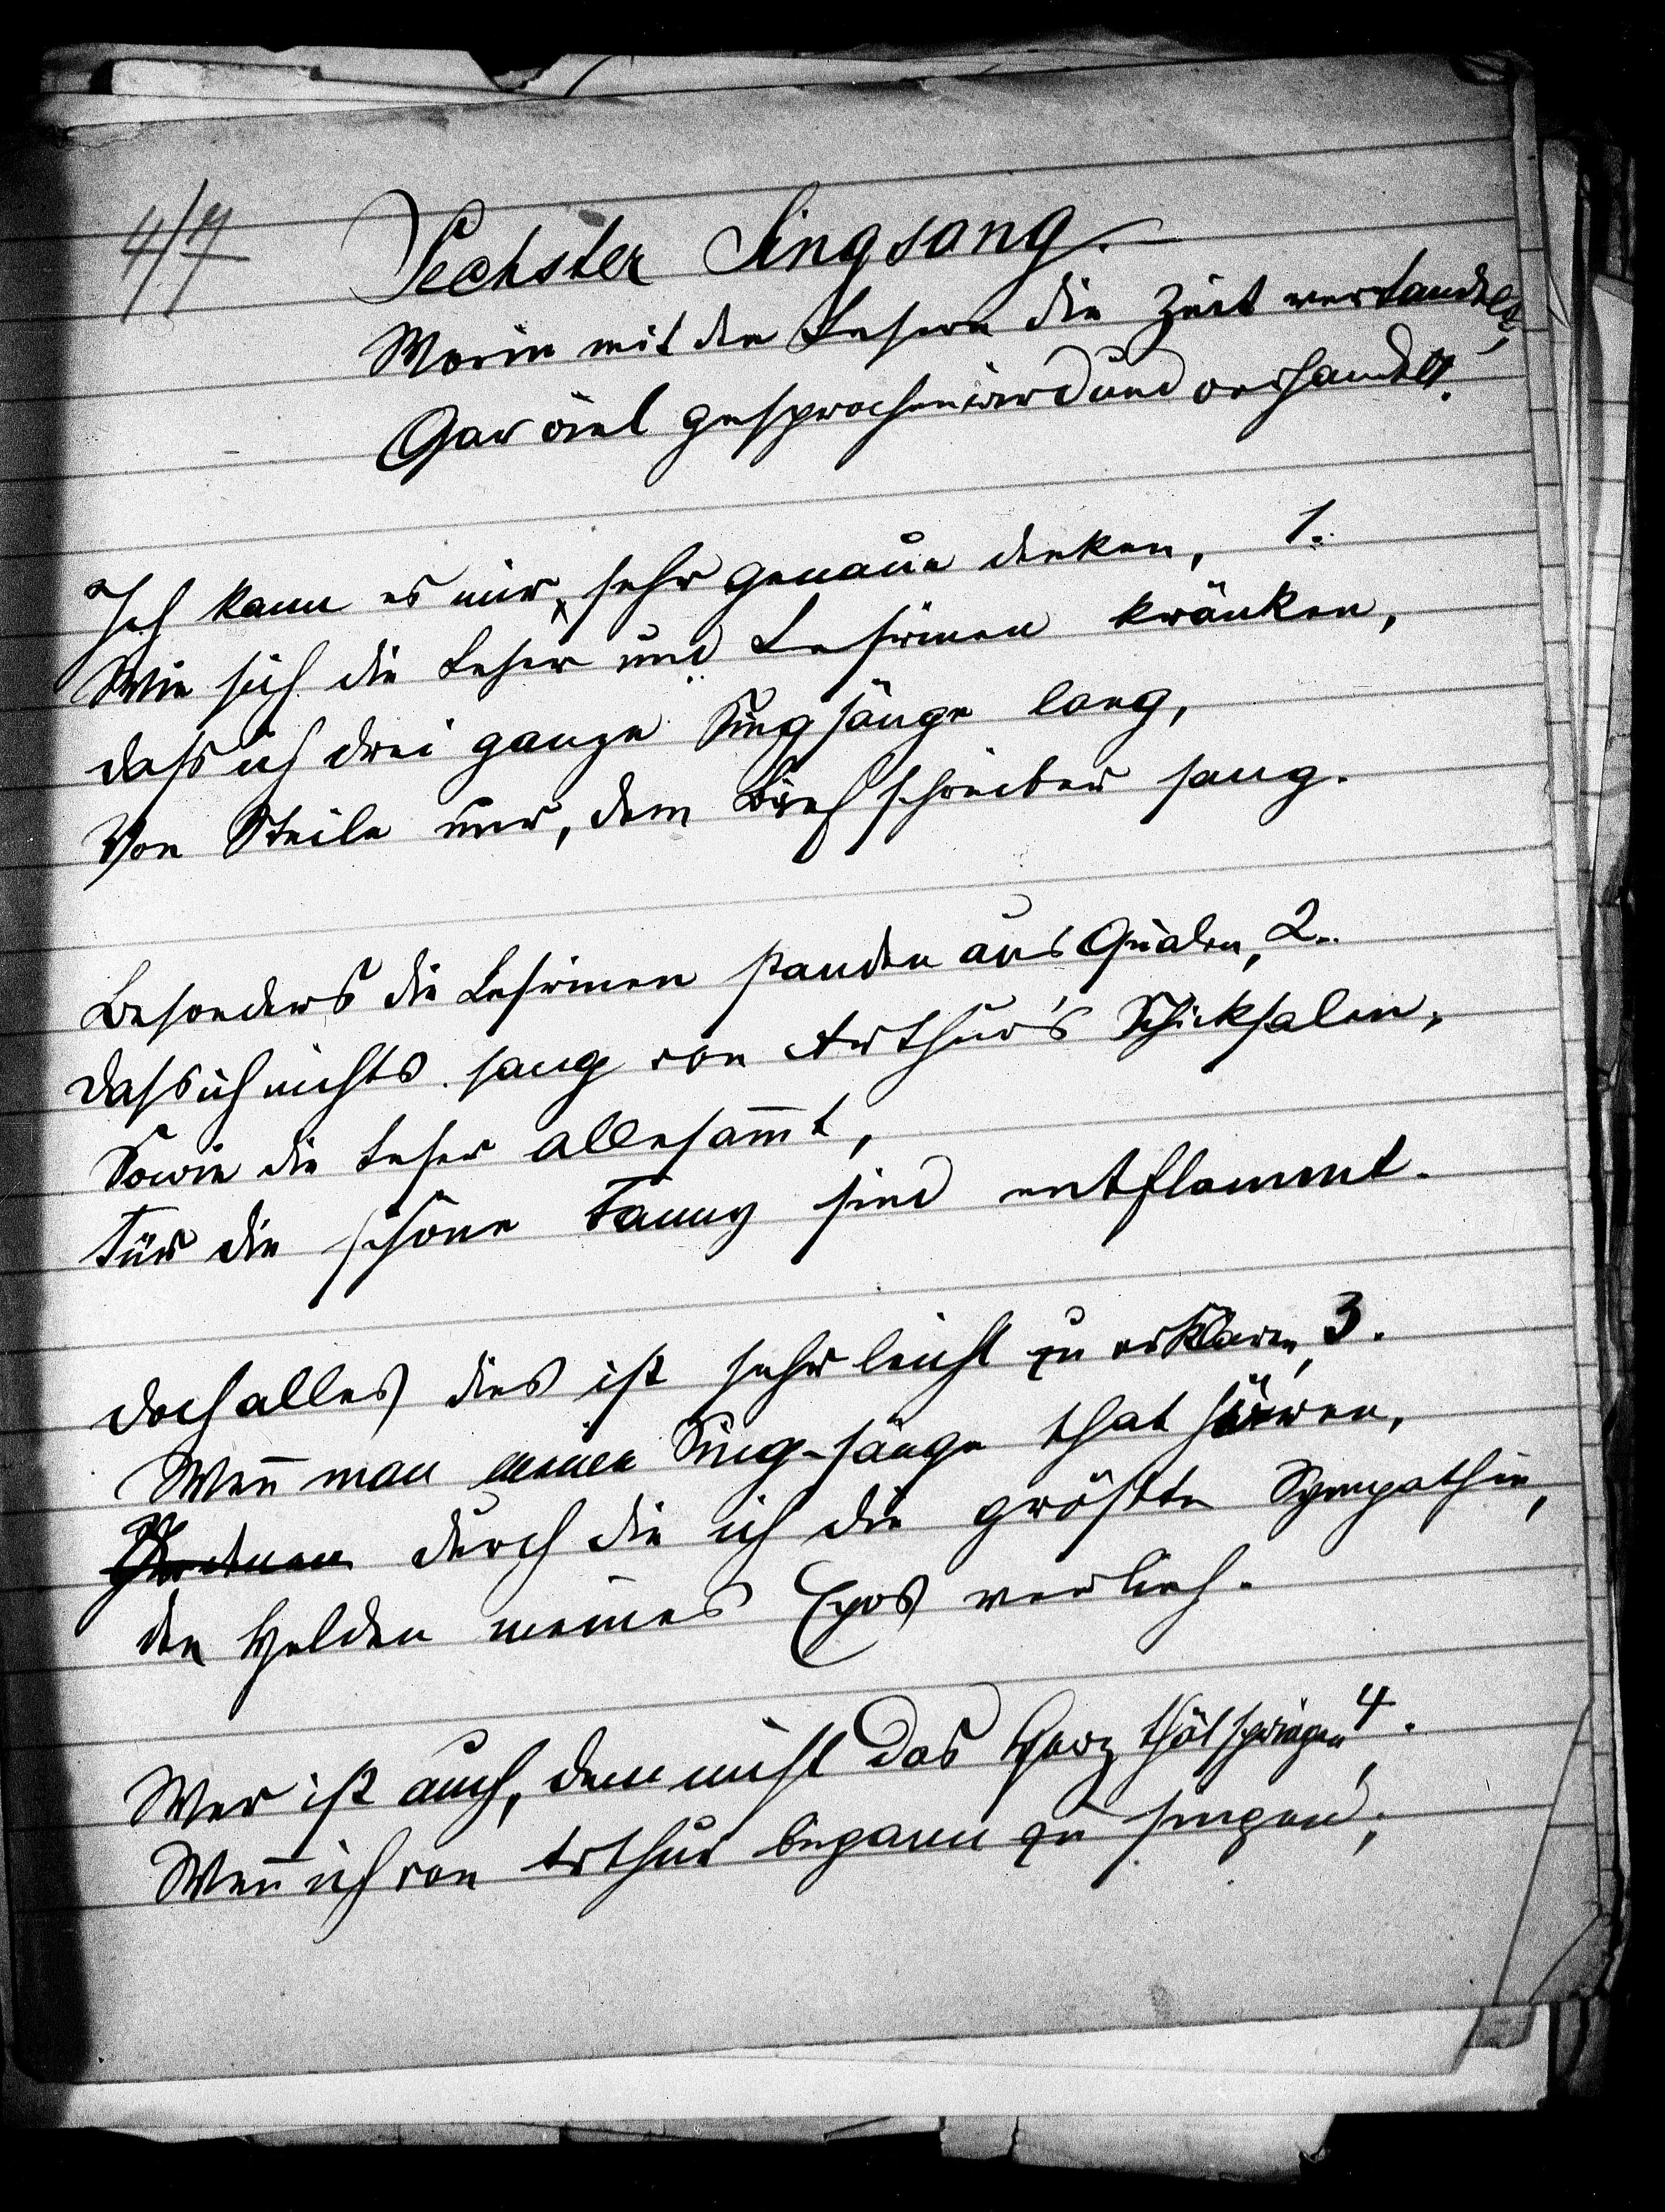 4/7
Sechster Singsang.
Worin mit den Lesern die Zeit vertandelt,
Gar viel gesprochen wird und verhandelt.
Ich kann es mir, sehr genaue denken, 1.
Wie sich die Leser und Leserinen kränken,
dass ich drei ganze Singsänge lang,
Von Steile nur, dem Briefschreiber sang.
Besonders die Leserinen standen aus Qualen, 2.
dass ich nichts sang von Arthur's Schicksalen,
Sowie die Leser allesam̄t,
Für die schöne Fanny sind entflammt.
doch alles dies ist sehr leicht zu erklären, 3.
Wen̄ man meine Sing-sänge that hören,
durch die ich die größte Sympathie,
den Helden meines Epos verlieh.
Wer ist auch, dem nicht das Herz thät springen, 4.
Wen̄ ich von Arthur begann zu singen;